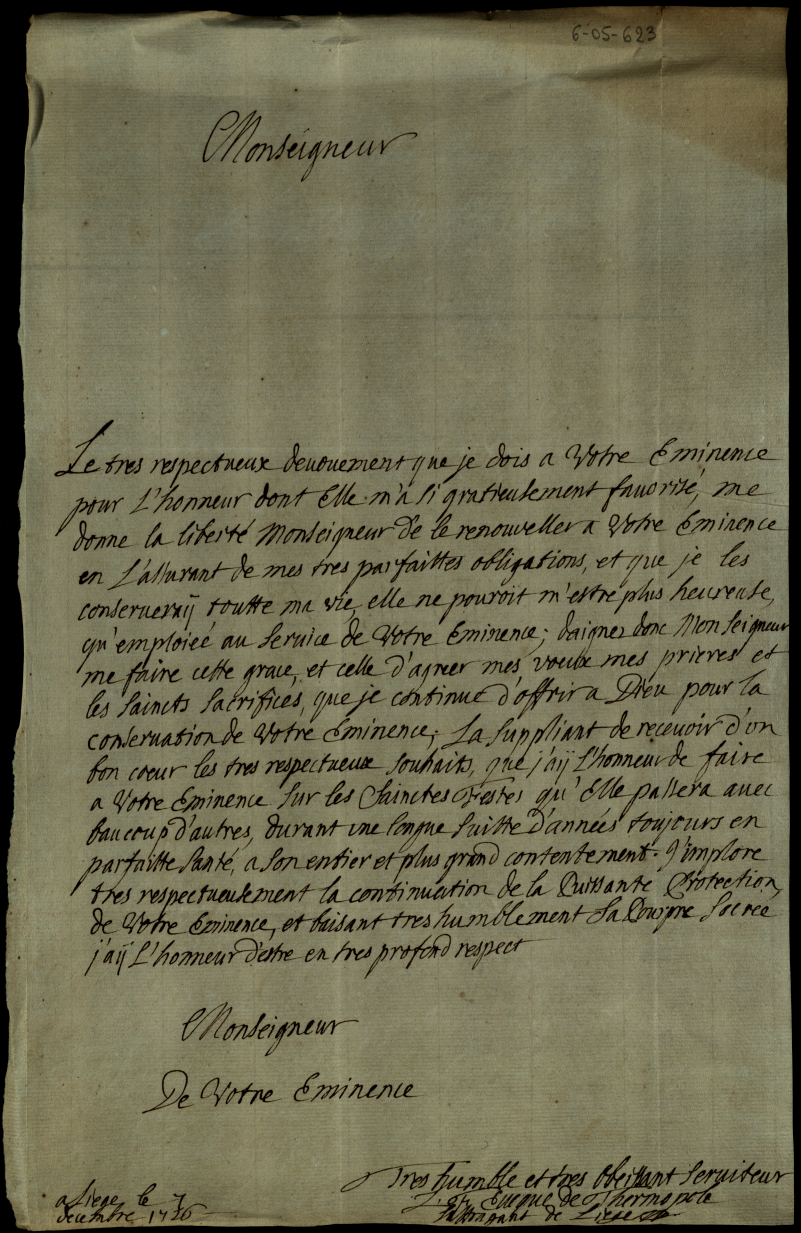 6-05-623
Monseigneur
Le tres respectueux devouement que je dois a Votre Eminence
pour L'honneur dont Elle m'a si gratieusement favorisé, me
donne la liberté Monseigneur de le renouveller a Votre Eminence
en L'assurant de mes tres parfaittes obligations, et que je les
conserveraÿ toutte ma vie, elle ne pouroit m'estre plus heureuse,
qu'emploieé au service de Votre Eminence; daignez donc Monseigneur
me faire cette grace, et celle d'agreer mes voeux mes prieres et
les saincts sacrifices, que je continue d'offrir a Dieu pour la
conservation de Votre Eminence; La suppliant de recevoir d'un
bon coeur les tres respectueux souhaits, que j'aÿ L'honneur de faire
a Votre Eminence sur les Sainctes Festes qu'Elle passera avec
baucoup d'autres, durant une longue suitte d'années toujours en
parfaitte santé, a son entier et plus grand contentement. J'implore
tres respectueusement la continuation de la Puissante Protection
de Votre Eminence, et baisant tres humblement Sa Pourpre Sacrée
j'aÿ L'honneur d'estre en tres profond respect
Monseigneur
De Votre Eminence
Tres humble et tres Obeissant serviteur
Eveque de Thermopole
suffragant de Liege
a Liege le 7
decembre 1726